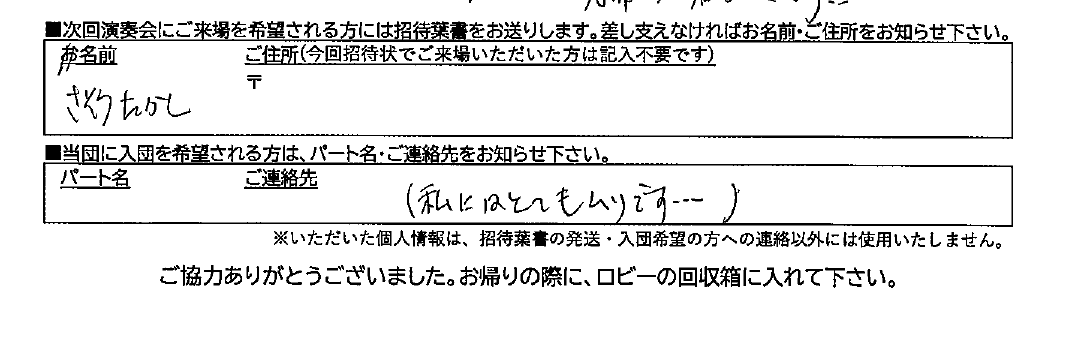 ■次回演奏会にご来場を希望される方には招待葉書をお送りします。差し支えなければお名前・ご住所をお知らせ下さい。
お名前 ご住所(今回招待状でご来場いただいた方は記入不要です)
〒
たかし
■当団に入団を希望される方は、パート名・ご連絡先をお知らせ下さい。
パート名 ご連絡先
(私にはとてもムリです…)
※いただいた個人情報は、招待葉書の発送・入団希望の方への連絡以外には使用いたしません。
ご協力ありがとうございました。お帰りの際に、ロビーの回収箱に入れて下さい。